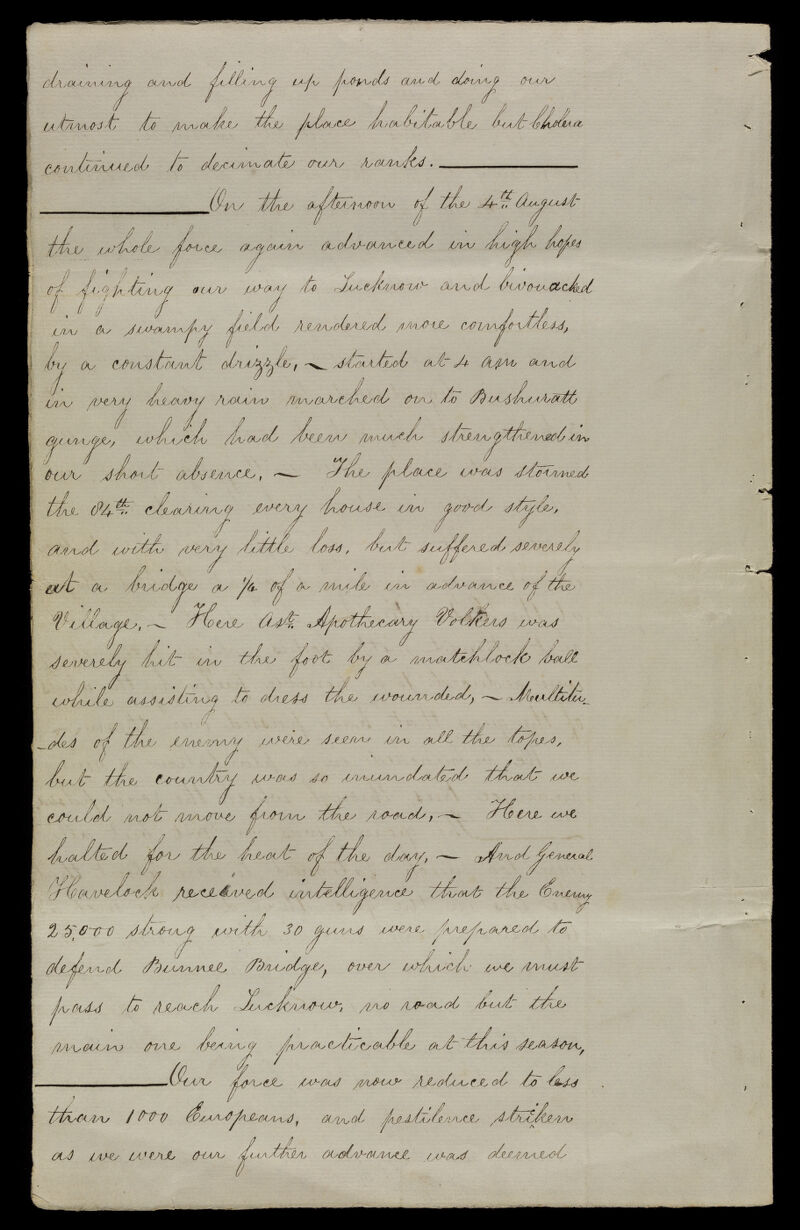 draining and filling up ponds and doing our
utmost to make the place habitable but Cholera
continued to decimate our ranks. ———
——— On the afternoon of the 4th August
the whole force again advanced in high hopes
of fighting our way to Lucknow and bivouacked
in a swampy field rendered more comfortless,
by a constant drizzle, — started at 4 am and
in very heavy rain marched on to Bushuratt
gunge, which had been much strengthened in
our short absence. — The place was stormed
the 84th clearing every house in good style,
and with very little loss, but suffered severely
at a bridge a ¼ of a mile in advance of the
Village. — Here Asst. Apothecary Volkers was
severely hit in the foot by a matchlock ball
while assisting to dress the wounded, — Multitu-
-des of the enemy were seen in all the topes,
but the country was so inundated that we
could not move from the road, — Here we
halted for the heat of the day, — And General
Havelock received intelligence that the Enemy
25,000 strong with 30 guns were prepared to
defend Bunnee Bridge, over which we must
pass to reach Lucknow, no road but the
main one being practicable at this season,
——— Our force was now reduced to less
than 1000 Europeans, and pestilence striken
as we were our further advance was deemed